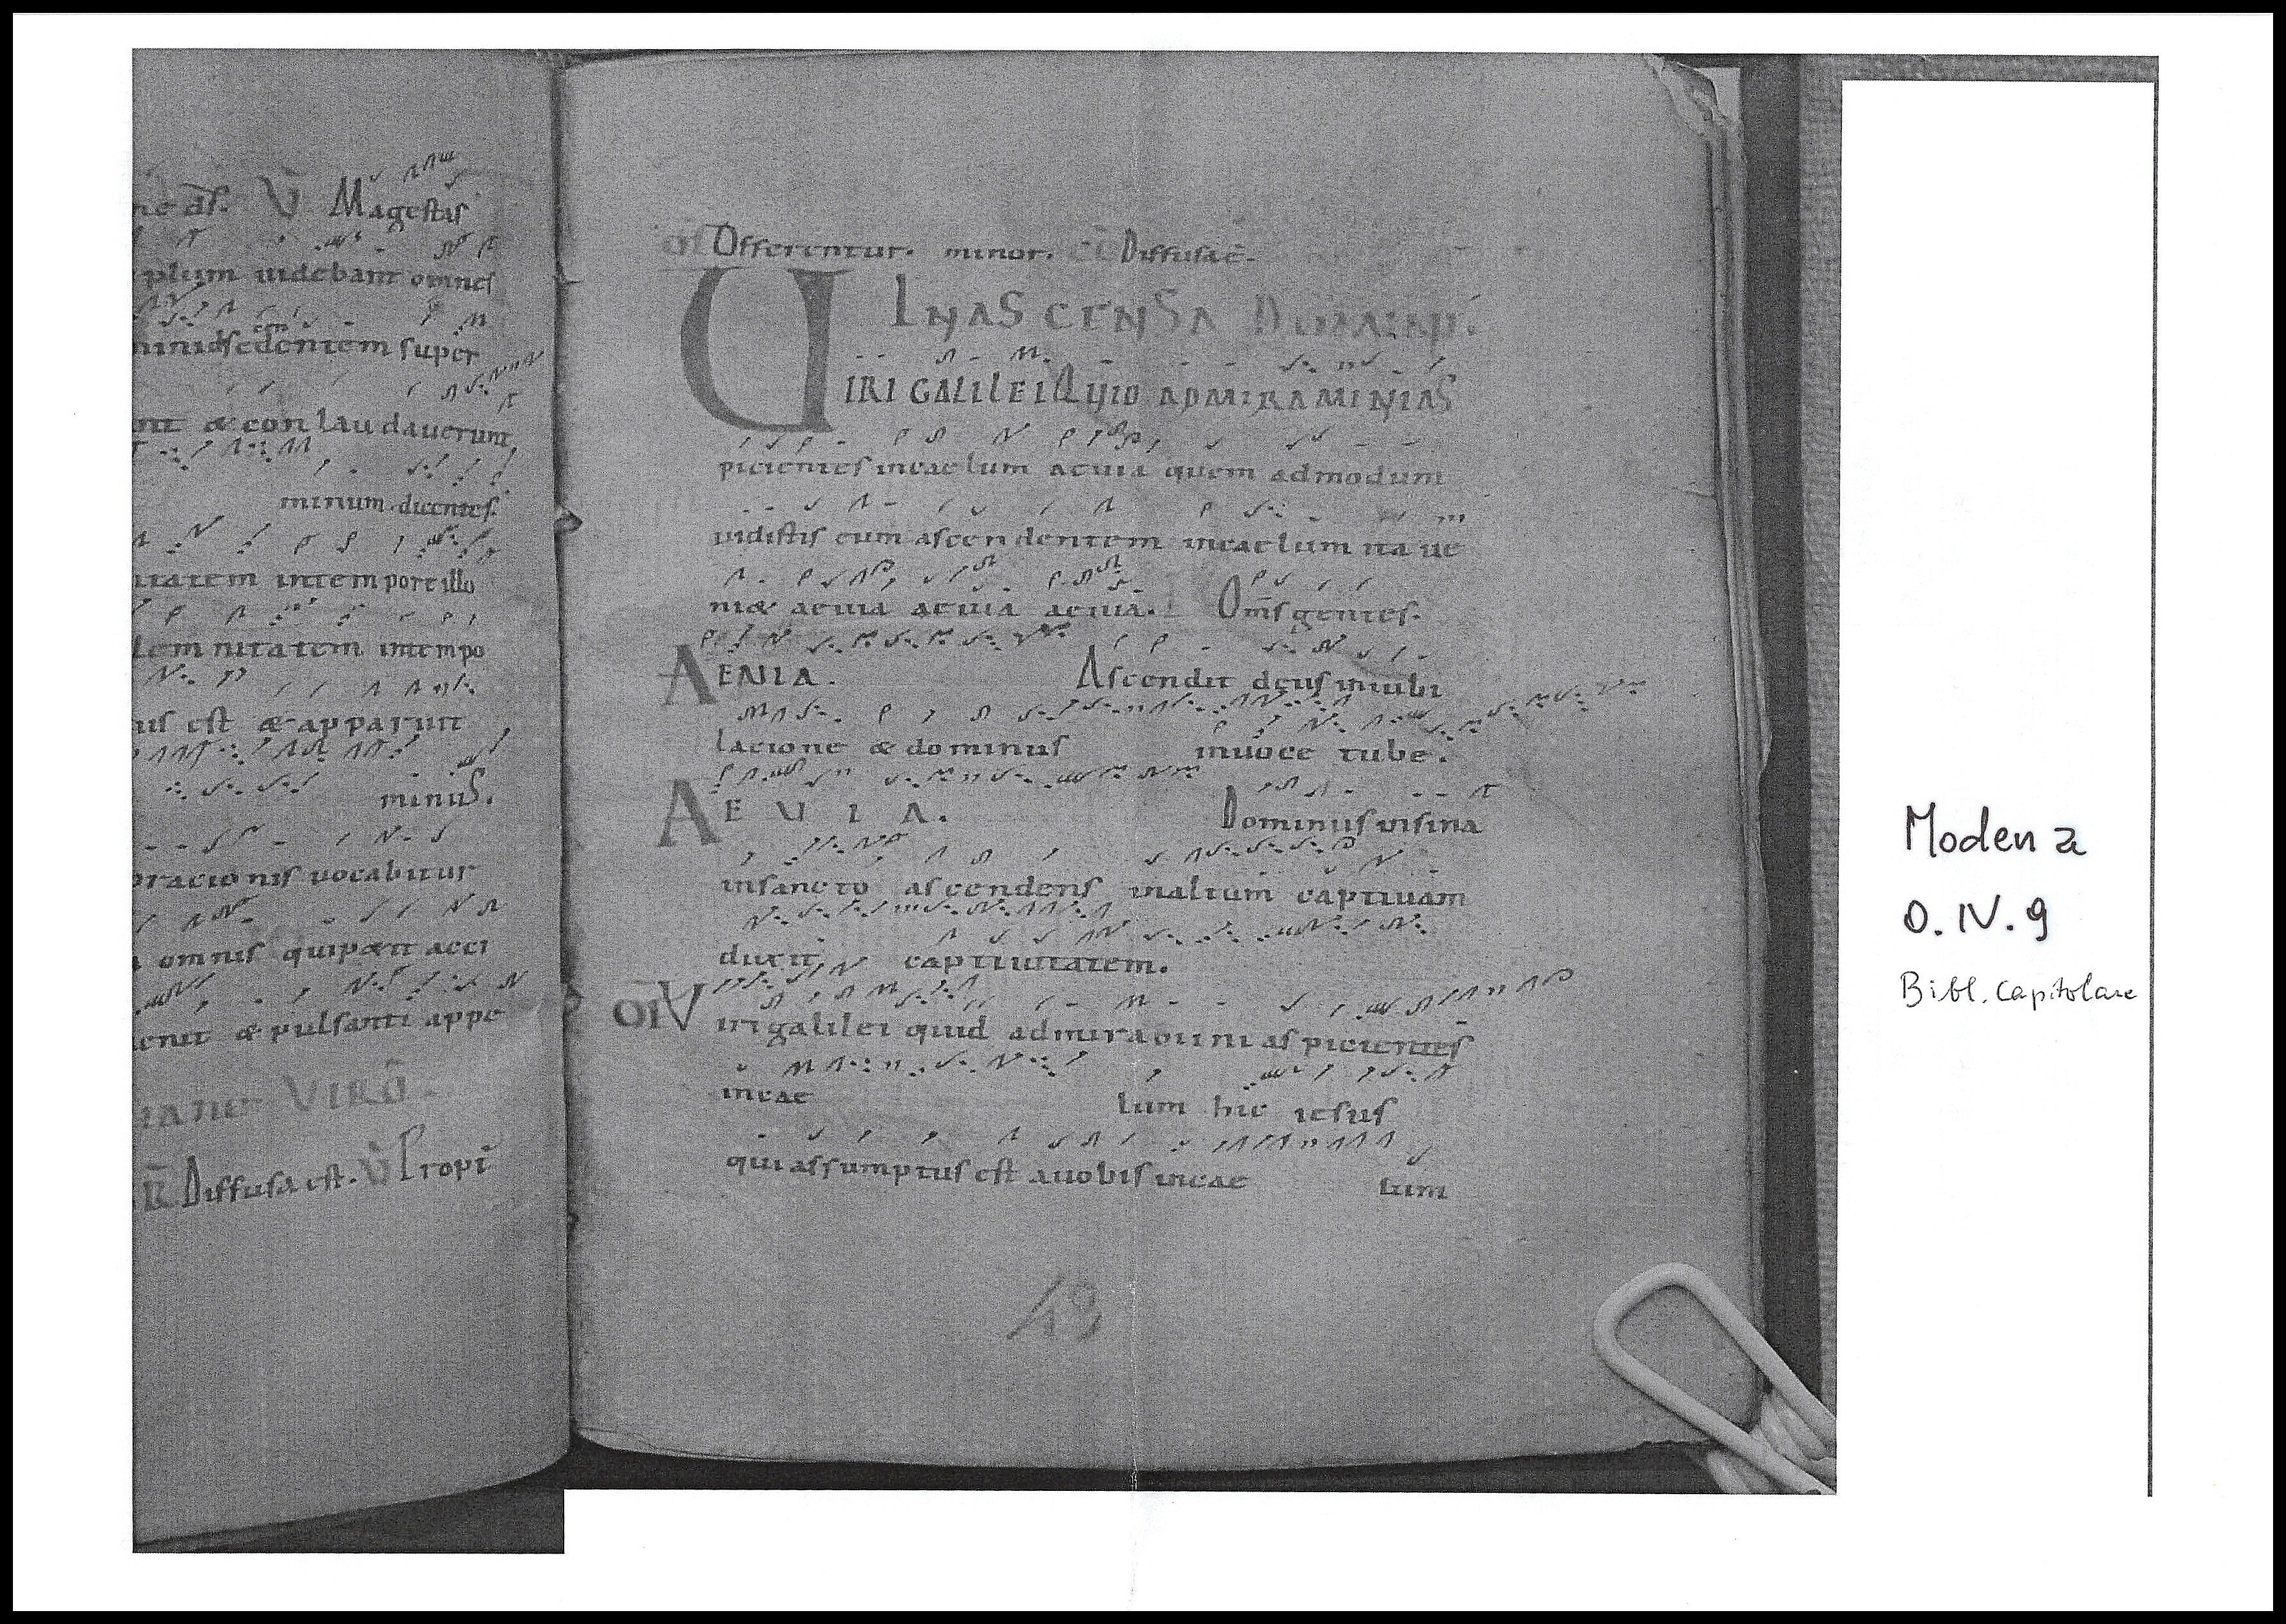 Magestas
plum uidebant omnes
sedentem super
& con laudauerunt
minum dicentes.
tatem intempore illo
lem nitatem intempo
us est & apparuit
minuS.
oracio nis uocabitur
omnis qui petit acci
& pulsanti ape
VIRG.
R Diffusa est. V Propt
of Offerentur. minor. cō Diffusa ē.
IN ASCENSA DOMINI.
VIRI GALILEI QUID ADMIRAMINI AS
picientes incaelum aeuia quem admodum
uidistis eum ascendentem incaelum ita ue
ni& aeuia aeuia aeuia. Oms gentes.
AEUIA. Ascendit deus iniubi
lacione & dominus inuoce tube.
AEUIA. Dominus insina
insancto ascendens inaltum captiuam
duxit captiuitatem.
Viri galilei quid admiramini aspicientes
incae lum hic iesus
qui assumptus est auobis incae lum
49
Modena
O.IV.9
Bibl. Capitolare